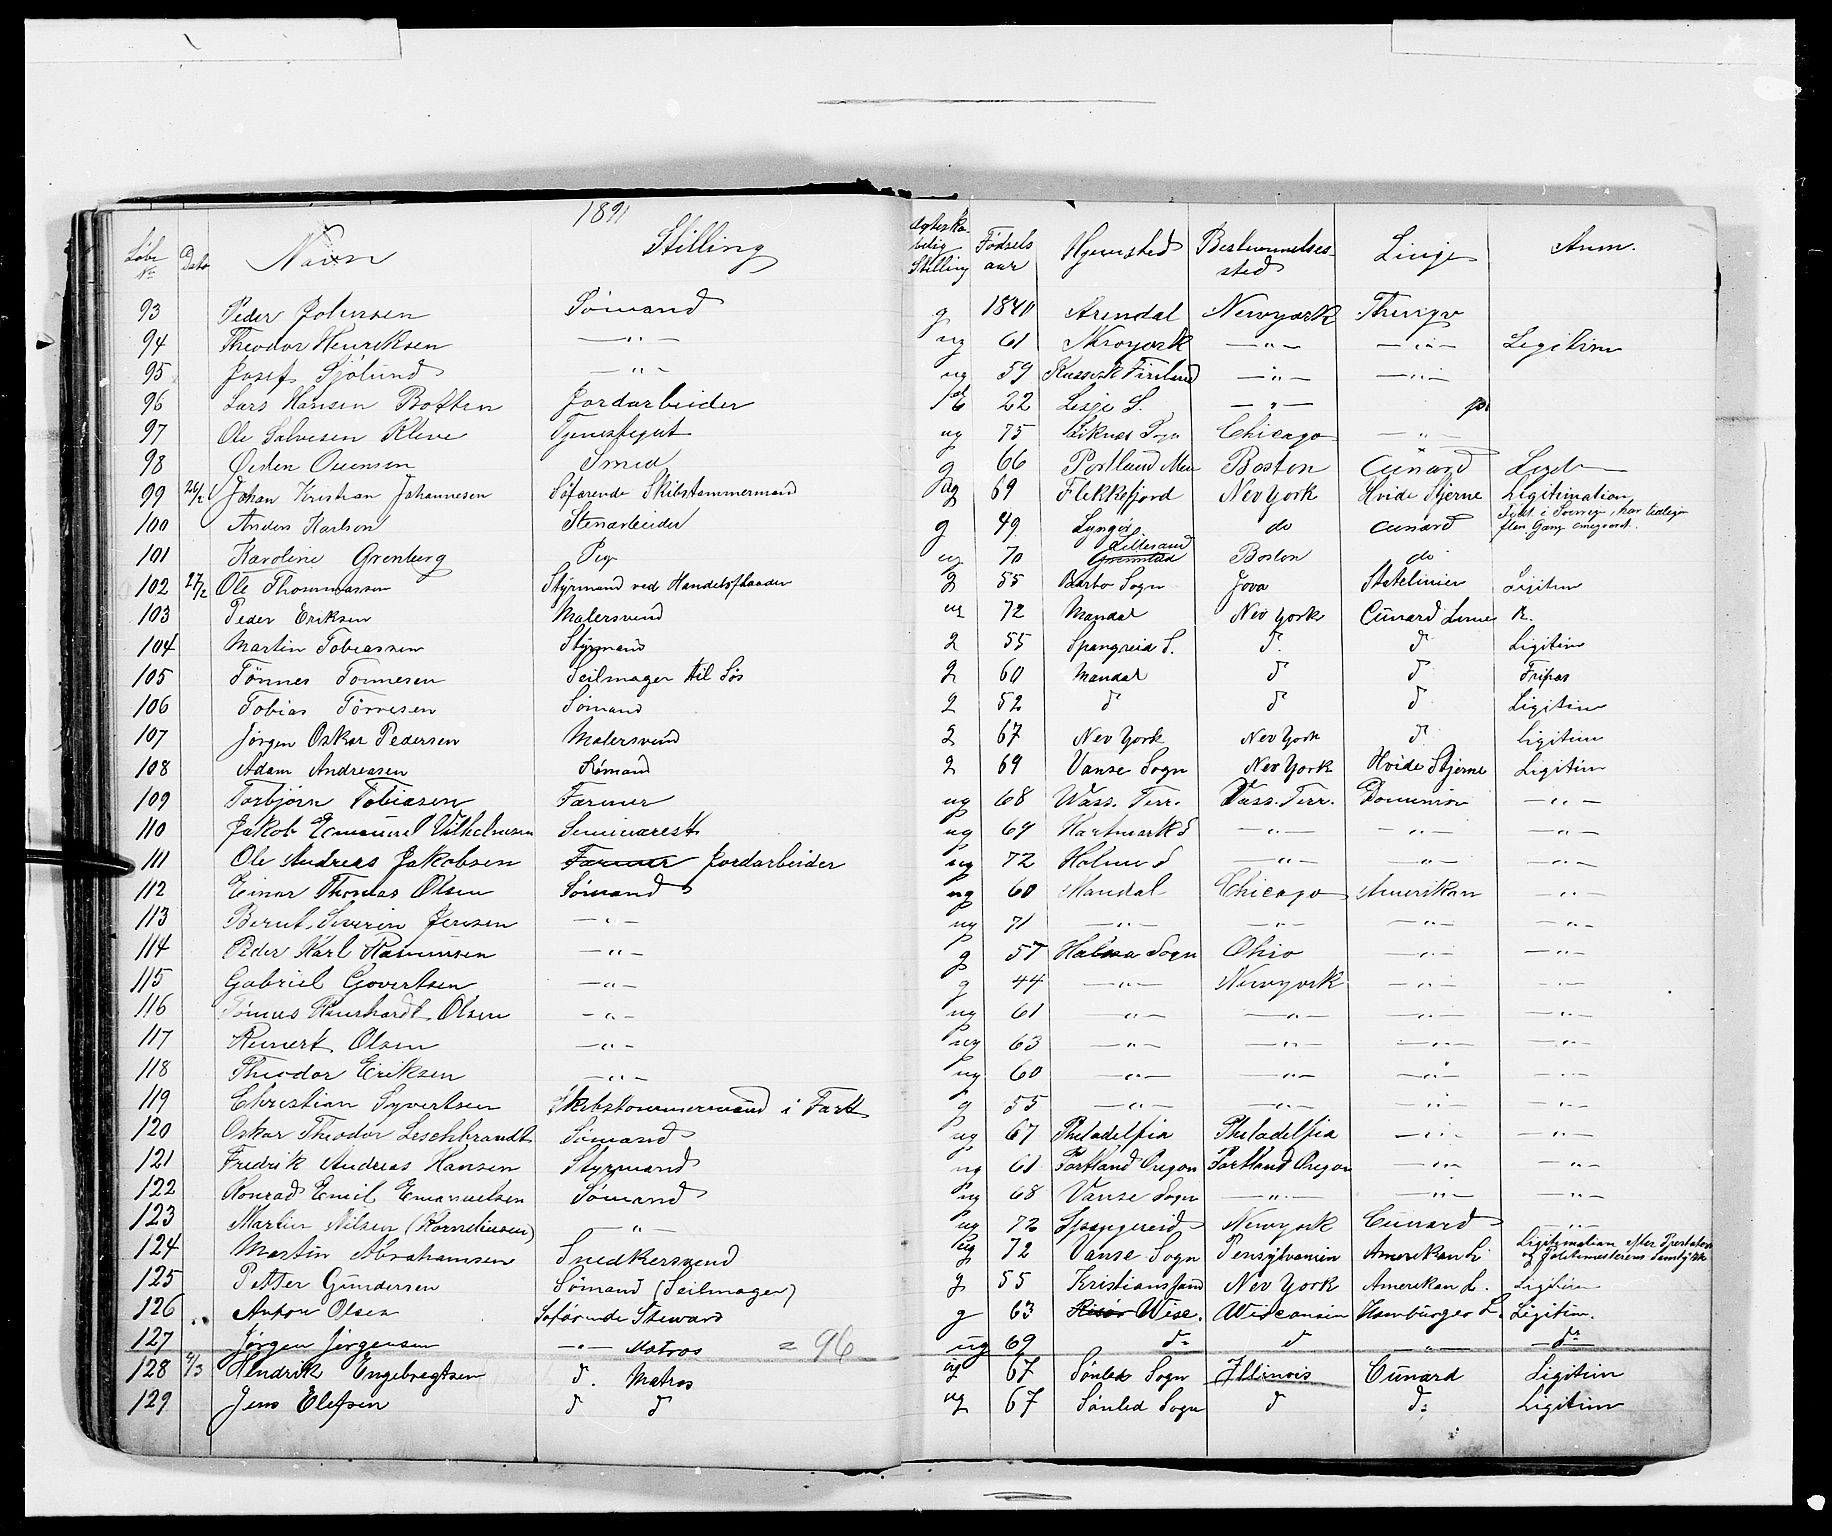 1891
Løbe No Dato Navn Stilling Ægteskabelig Stilling Fødselsaar Hjemsted Bestemmelsessted Linje Anm.
93 Peder Johnsen Sömand g 1840 Arendal Newyork Thingv
94 Theodor Henriksen —"— ug 61 Newyork —"— —"— Legitim
95 Josef Sjölund —"— ug 59 Russisk Finland —"— —"—
96 Lars Hansen Botten Jordarbeider 22 S. —"—
97 Ole Salvesen Kleve Tjenestegut ug 75 Chicago —"—
98 Smed g 66 Portland Boston Cunard
99 26/2 Johan Kristian Johannesen Söfarende Skibstømmermand ug 69 Flekkefjord New York Hvide Stjerne Legitimation
100 Anders Karlson Stenarbeider g 49 Lyngör do Cunard
101 Karoline Grenberg Pige ug 70 Lillesand Boston do
102 27/2 Ole Thommassen Styrmand ved Handelsflaaden g 55 Barbo Sogn Jova Statelinien Legitim
103 Peder Eriksen Malersvend ug 72 Mandal New York Cunard Linie R.
104 Martin Tobiassen Styrmand g 55 Spangreid S. d d Legitim
105 Tönnes Tonnesen Seilmager til Sös g 60 Mandal d d Fripas
106 Tobias Törresen Sömand g 52 d d d Legitim
107 Jörgen Oskar Pedersen Malersvend g 67 New York New York d Legitim
108 Adam Andreasen Sömand g 69 Vanse Sogn New York Hvide Stjerne Legitim
109 Torbjörn Tobiasen Farmer ug 68 Wass. Terr. Vass. Terr. Dominion —"—
110 Jakob Emanuel Vilhelmsen Seminarist ug 69 Hartmark S —"— —"— —"—
111 Ole Andreas Jakobsen Farmer Jordarbeider ug 72 Holme S —"— —"— —"—
112 Einar Thomas Olsen Sömand ug 60 Mandal Chicago Amerikan —"—
113 Bernt Severin Jensen —"— ug 71 —"— —"— —"— —"—
114 Peder Karl Rasmussen —"— g 57 Halsaa Sogn Ohio —"— —"—
115 Gabriel Govertsen —"— g 44 —"— Newyork —"— —"—
116 Tönnes Olsen —"— ug 61 —"— —"— —"— —"—
117 Reinert Olsen —"— ug 63 —"— —"— —"— —"—
118 Theodor Eriksen —"— ug 60 —"— —"— —"— —"—
119 Christian Syvertsen Skibstømmermand i Fart g 55 —"— —"— —"— —"—
120 Oskar Theodor Leschbrandt Sömand ug 67 Philadelfia Philadelfia —"— —"—
121 Fredrik Andreas Hansen Styrmand ug 61 Portland Oregon Portland Oregon —"— —"—
122 Konrad Emil Emanuelsen Sömand ug 68 Vanse Sogn —"— —"— —"—
123 Martin Nilsen (Korneliusen) —"— ug 72 Spangereid Newyork Cunard —"—
124 Martin Abrahamsen Snedkersvend ug 72 Vanse Sogn Pensylvanien Amerikan L. Legitimation efter og Politimesterens Samtykke
125 Petter Gundersen Sömand (Seilmager) g 55 Kristianssand New York Amerikan L. Legitim
126 Anton Olsen Söfarende Steward g 63 Risör Wisc. Wisconsin Hamburger L. Legitim.
127 Jørgen Jørgensen —"— Matros = 96 ug 69 do d —"— do
128 2/3 Hendrik Engebregtsen d. Matros ug 67 Sönled Sogn Illinois Cunard Legitim
129 Jens Elefsen d d ug 67 Sönled Sogn d do Legitim